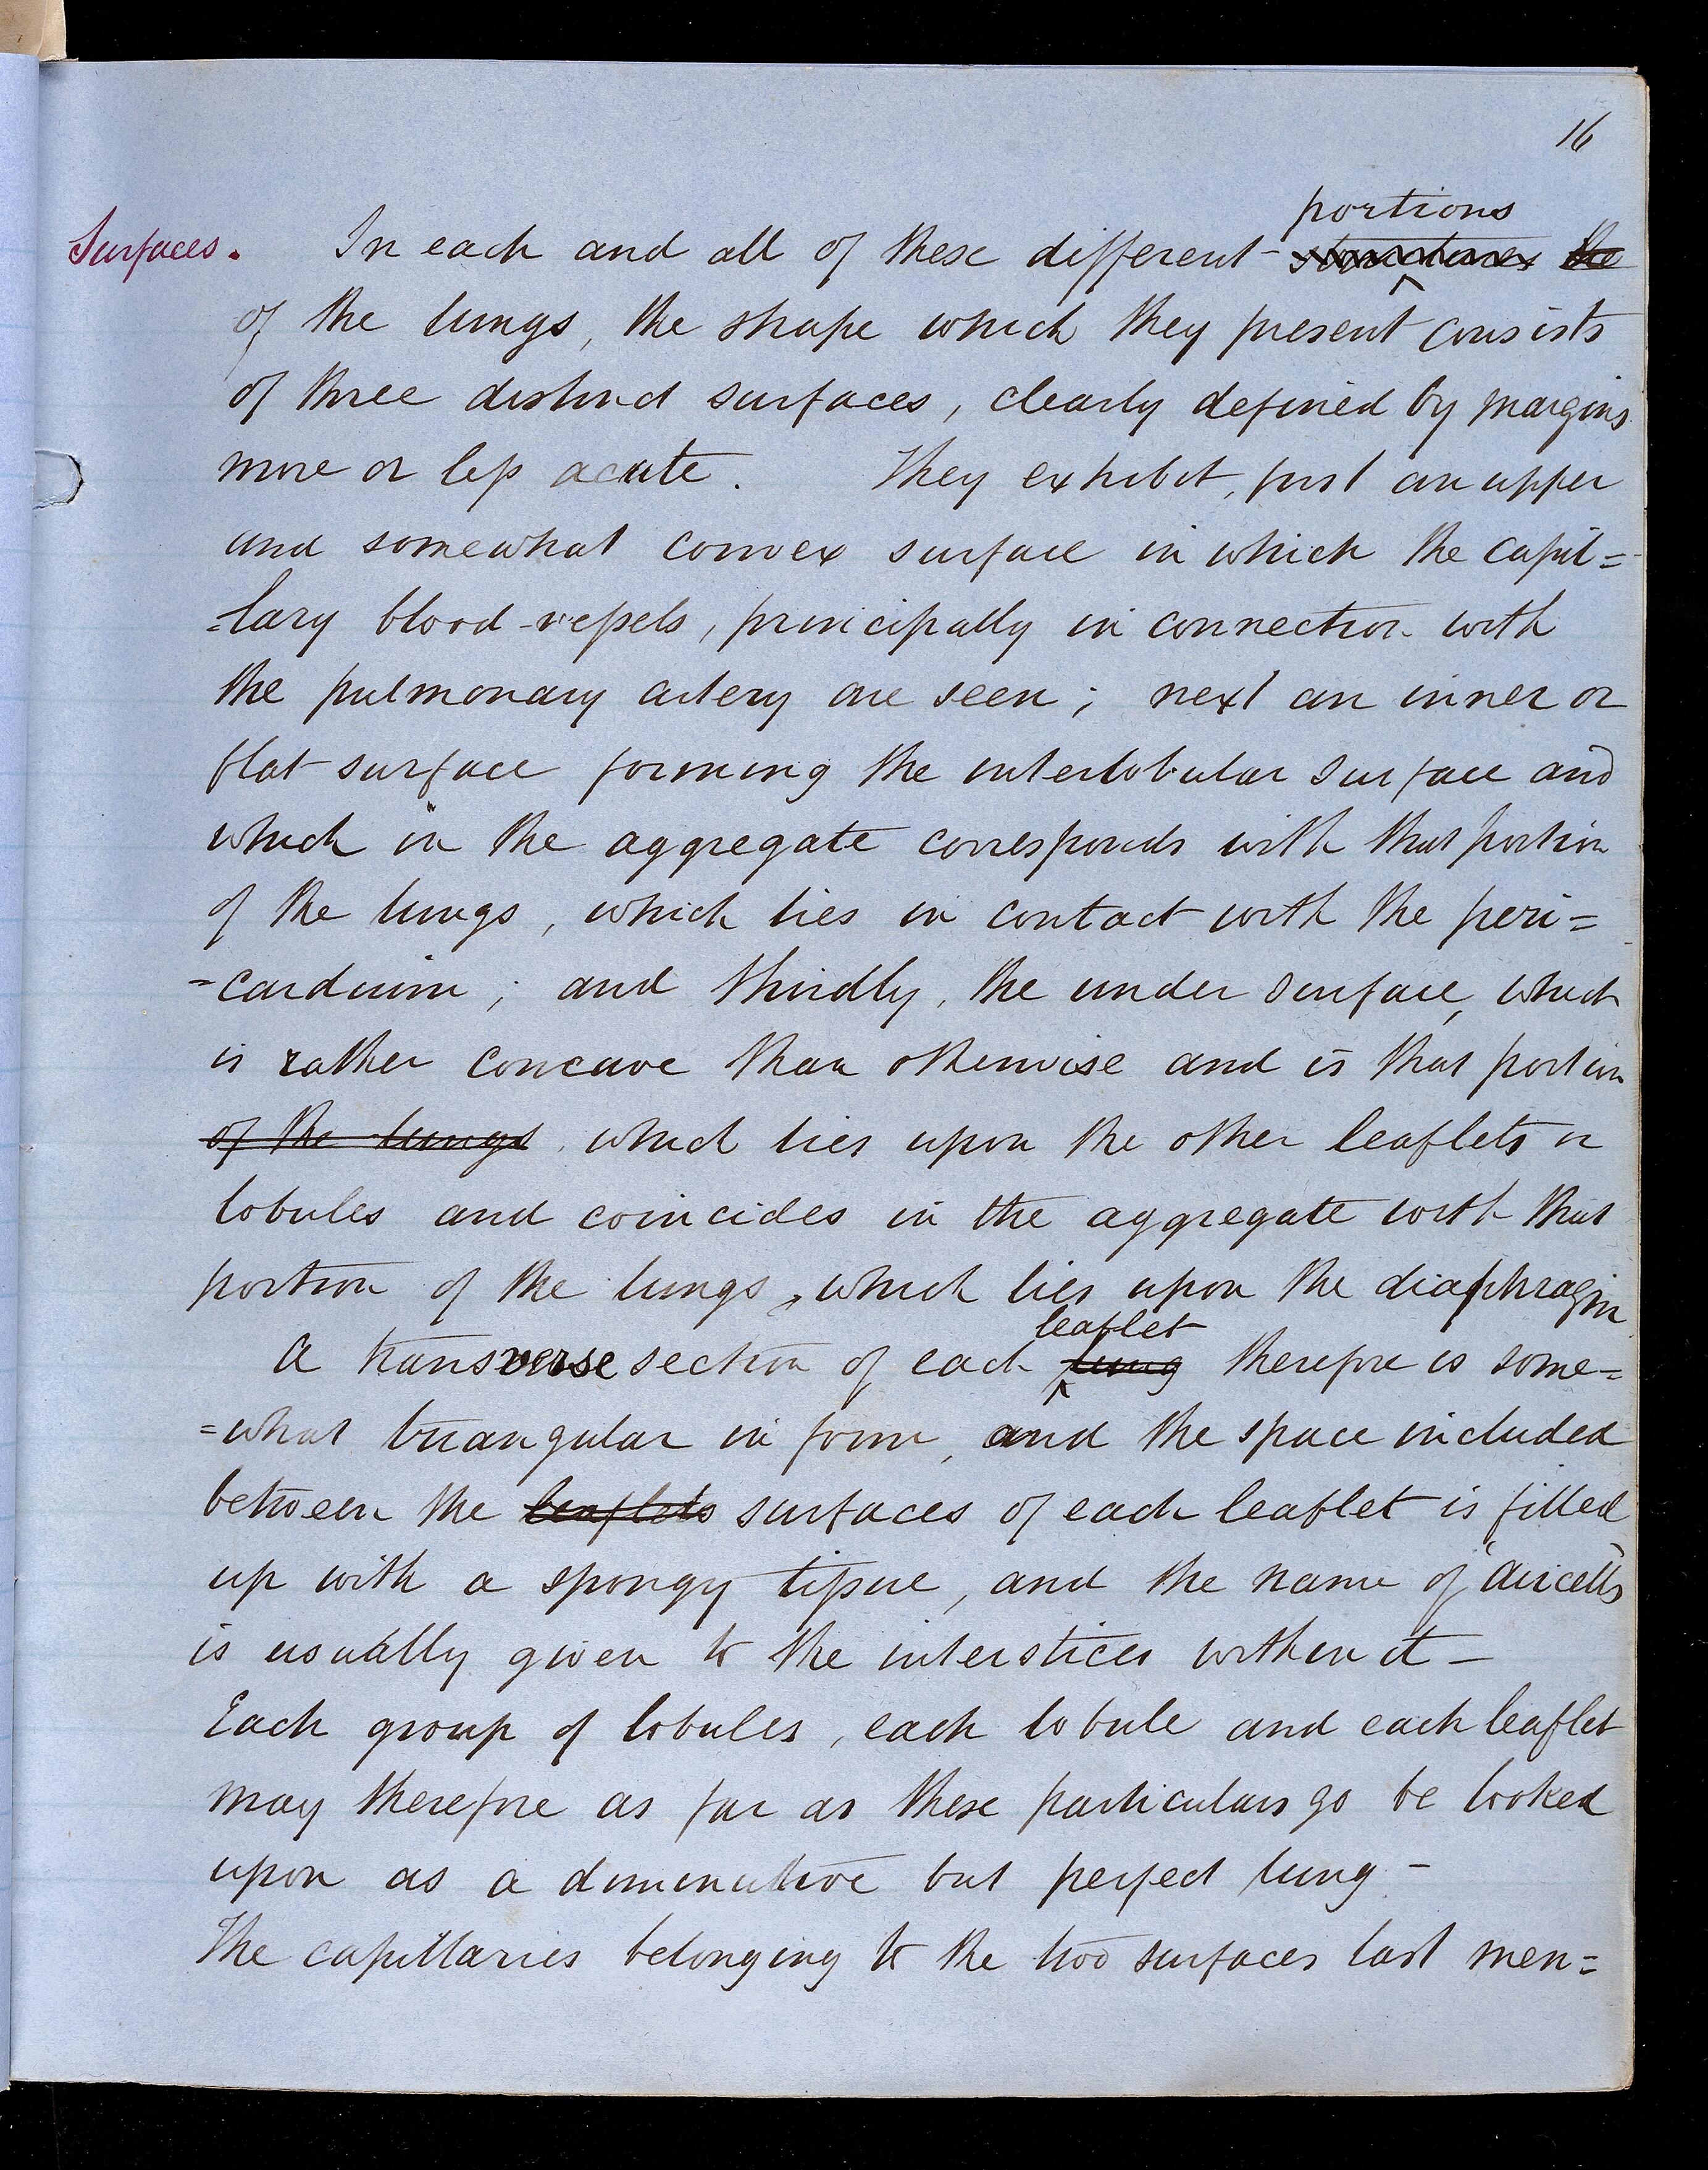 16
portions
Surfaces. In each and all of these different structures the
of the lungs, the shape which they present consists
of three distinct surfaces, clearly defined by margins
more or less acute. They exhibit, first an upper
and somewhat convex surface in which the capil=
=lary blood-vessels, principally in connection with
the pulmonary artery are seen; next an inner or
flat surface forming the interlobular surface and
which in the aggregate corresponds with that portion
of the lungs, which lies in contact with the peri=
=cardium; and thirdly, the under surface, which
is rather concave than otherwise and is that portion
of the lungs which lies upon the other leaflets or
lobules and coincides in the aggregate with that
portion of the lungs, which lies upon the diaphragm
leaflet
A transverse section of each lung therefore is some=
=what triangular in form, and the space included
between the leaflets surfaces of each leaflet is filled
up with a spongy tissue, and the name of "aircells"
is usually given to the interstices within it –
Each group of lobules, each lobule and each leaflet
may therefore as far as these particulars go be looked
upon as a diminutive but perfect lung –
The capillaries belonging to the two surfaces last men=